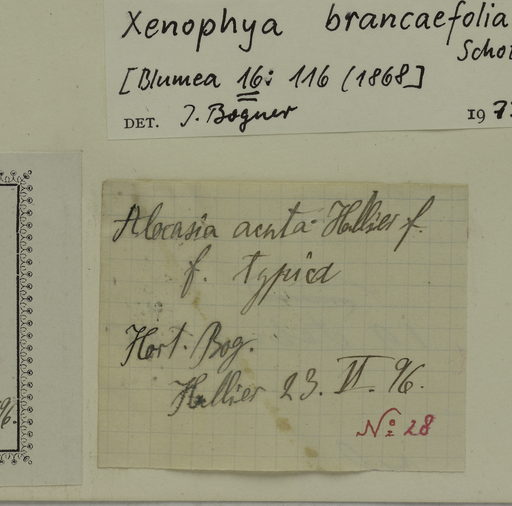 Xenophya brancaefolia
Schot
[Blumea 16: 116 (1868]
DET. J. Bogner 197
Alocasia acuta Hallier f.
f. typica
Hort. Bog.
Hallier 23. VI. 96.
No 28
96.